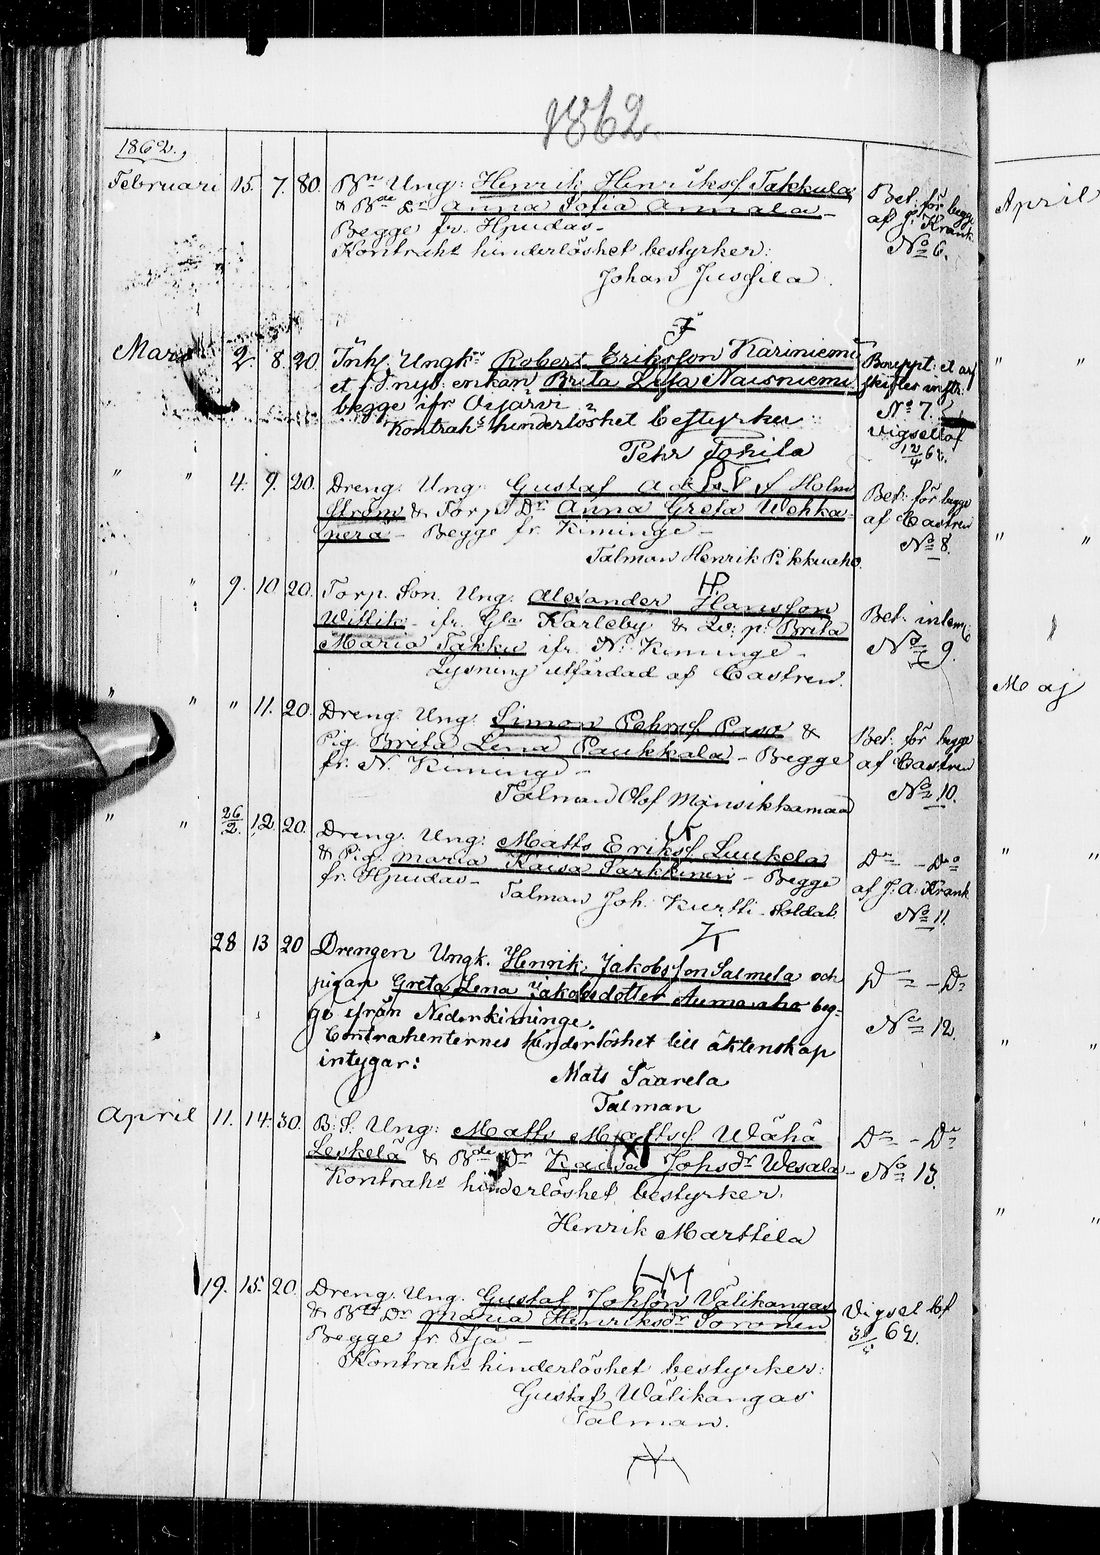 1862.
1862.
Februari 15. 7. 80. Bn Ung: Henrik Henriksf Takkula
& Bde Dr Anna Sofia Annala –
Begge fr. Hpudas –
Kontrahs hinderlöshet bestyrker:
Johan Jussila.
Bet: för begge
af J. Krank
No 6.
Mars 2 8 20 Inhs. Ungk: Robert Eriksson Kariniemi
et f.d. enkan Brita Lisa Naisniemi
begge ifr
Kontrahs hinderlöshet bestyrker
Pehr Tokila
No 7
Vigselbof
12/4 62.
" " 4. 9. 20. Dreng: Ung: Gustaf Adolf Holm
ström & Torp. Dr Anna Greta Wehka-
perä – Begge fr. Kiminge –
Talman Henrik Pikkuaho.
Bet: för begge
af Castren
No 8.
" " 9. 10. 20. Torp. Son. Ung. Alexander Hansson
Wittik – ifr. Gla Karleby & Qv: p: Brita
Maria Takku ifr. N. Kiminge –
Lysning utfärdad af Castren.
Bet. inlem:
No 9.
" " " 11. 20. Dreng: Ung: Simon Pehrsf Paso &
Pig. Brita Lena Paukkala – Begge
fr. N. Kiminge –
Talman Olof Mansikkamaa
Bet: för begge
af Castren
No 10.
" " 26/2. 12. 20. Dreng: Ung: Matts Eriksf Luukela
& Pig. Maria Kaisa Sarkkinen – Begge
fr. Hpudas –
Talman Joh. Kurtti – Soldat.
Do – Do
af J. A. Krank
No 11.
28 13 20 Drengen Ungk. Henrik Jakobsson Salmela och
pigan Greta Lena Jakobsdotter Aumaaho beg-
ge ifrån Nederkiminge.
Contrahenternes hinderlöshet till äktenskap
intygar:
Mats Saarela
Talman
D – Do
No 12.
April 11. 14. 30. B: S. Ung: Matts Mattsf Wähä
Leskelä & Bde Dr Kaisa Johsdr Wesala –
Kontrahs hinderlöshet bestyrker:
Henrik Marttila
Do – Do
No 13.
19. 15. 20. Dreng: Ung. Gustaf Johsson Välikangas
& Bde Dr Maria Henriksdr Soronen
Begge fr Ijå –
Kontrahs hinderlöshet bestyrker:
Gustaf Wälikangas
Talman.
Vigsel bof
62.
April
" "
" "
Maj
" "
" "
" "